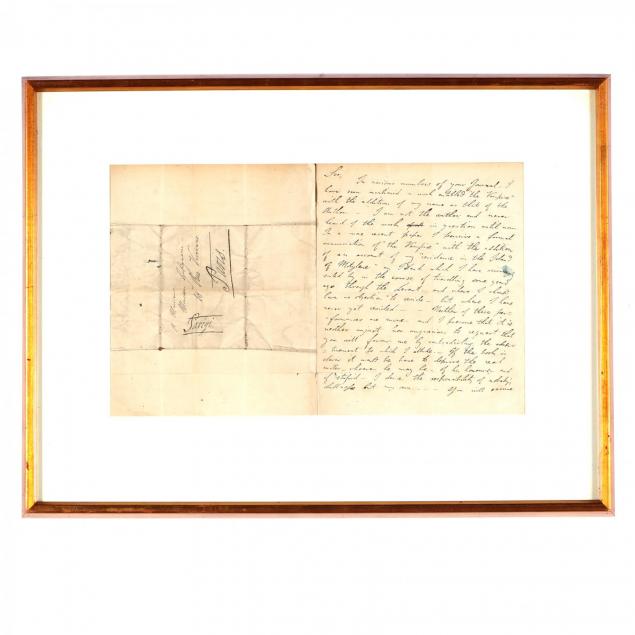 A Monsieur
18 Rue Vivienne
Paris
Parigi
Sir,
In various numbers of your Journal, I
have seen mentioned a work entitled "the Vampire"
with the addition of my name as that of the
Author. — I am not the author and never
heard of the work in question until now.
In a more recent paper I perceive a formal
annunciation of "the Vampire" with the addition
of an account of my "residence in the Island
of Mitylene" an Island which I have
sailed by in the course of travelling some years
ago through the Levant — and where I should
have no objection to reside — but where I have
never yet resided. — Neither of these per-
-formances are mine — and I presume that it is
neither unjust nor ungracious to request that
you will favour me by contradicting the adver-
-tisement to which I allude. — If the book is
clever it would be base to deprive the real
writer — whoever he may be — of his honours — and
if stupid — I desire the responsibility of nobody's
dullness but my own. — You will excuse